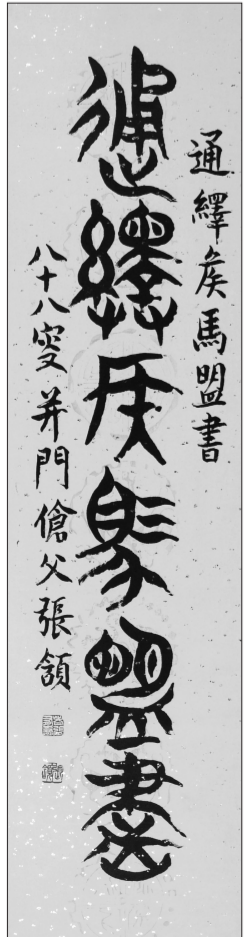 通繹侯馬盟書
通繹侯馬盟書
八十八叟并門傖父張頷